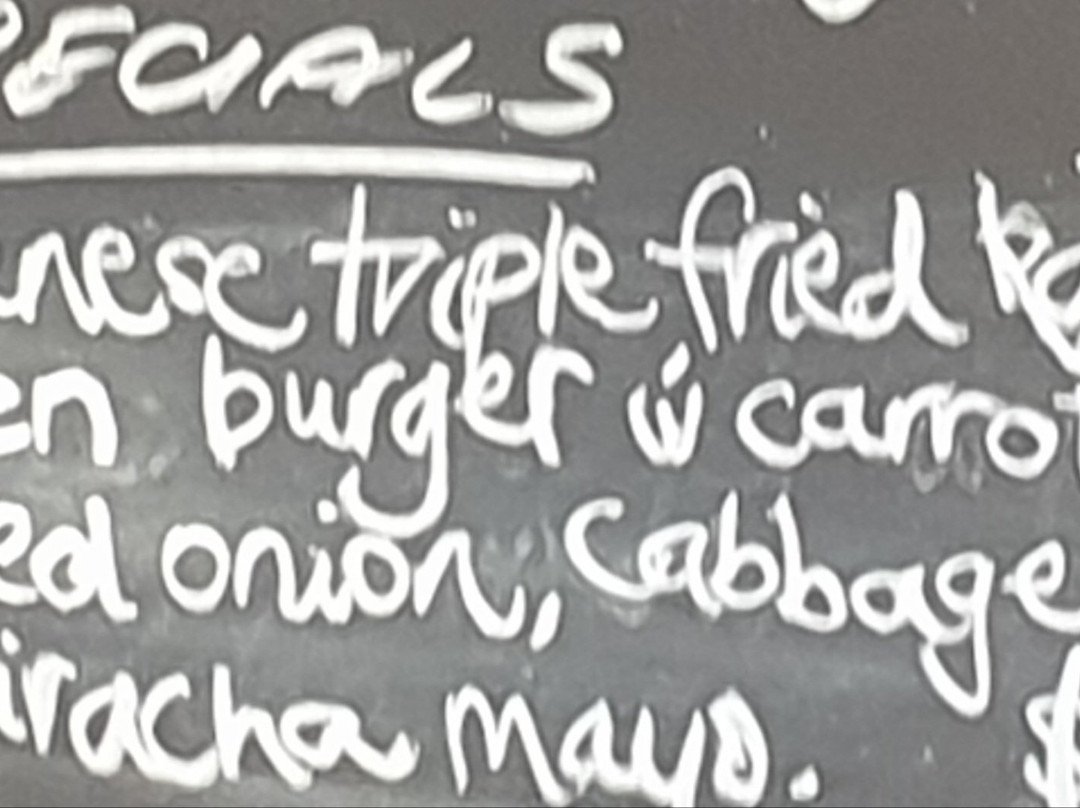 PECIALS
nese triple fried ka
en burger w carrot
ed onion, cabbage
iracha mayo. $